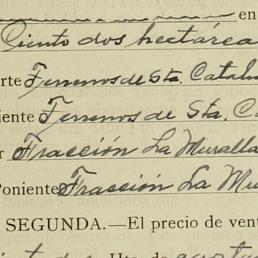 en
Ciento dos hectárea
rte Terrenos de Sta. Catal
iente Terrenos de Sta. C
r Fracción La Muralla
Poniente Fracción La Mu
SEGUNDA.—El precio de vent